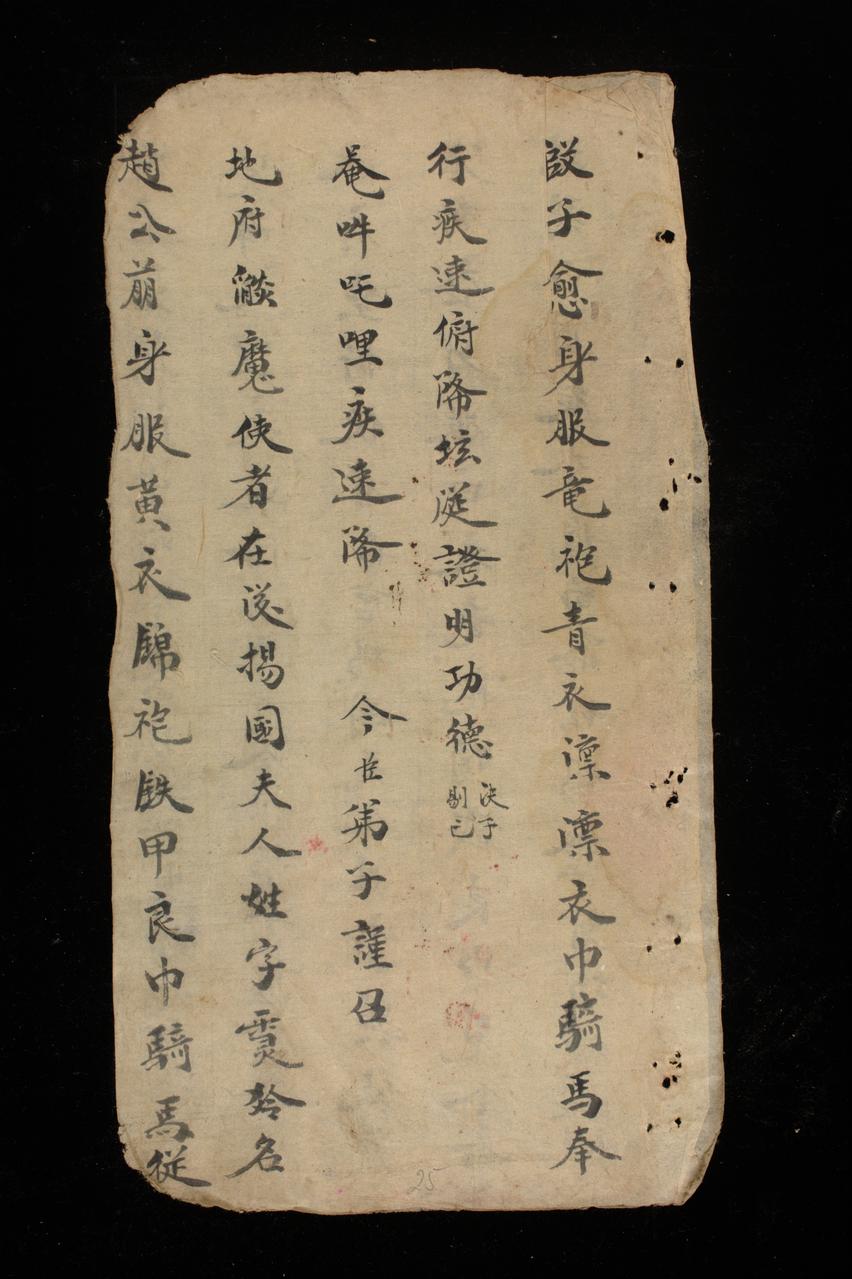 啟子愈身服竜袍青衣凛凛衣巾騎馬奉
行疾速俯降坛筵證明功德 決子
剔己
奄吽吒哩疾速降 今臣弟子謹召
地府 魔使者在送揚國夫人姓字 名
趙公萠身服黃衣錦袍鉄甲良巾騎馬從
25